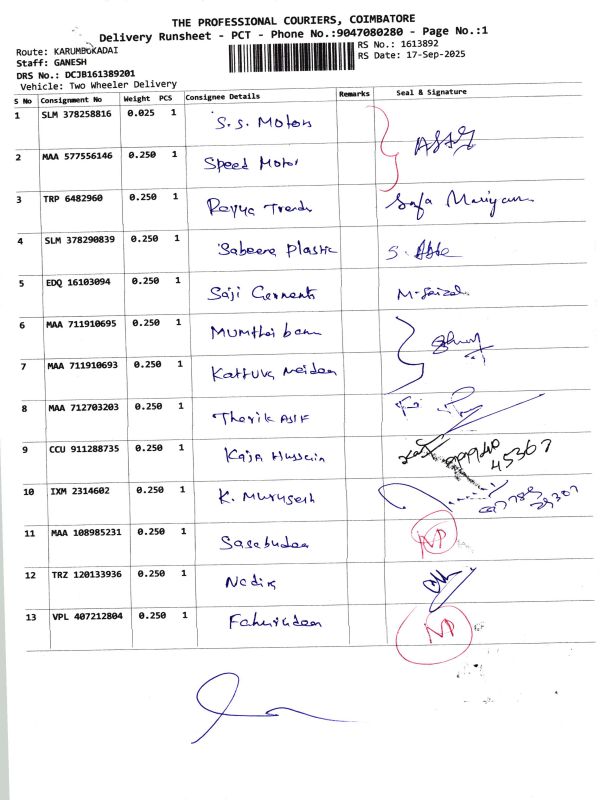 THE PROFESSIONAL COURIERS, COIMBATORE
Delivery Runsheet - PCT - Phone No.:9047080280 - Page No.:1
Route: KARUMBUKADAI
RS No.: 1613892
Staff: GANESH
RS Date: 17-Sep-2025
DRS No.: DCJB161389201
Vehicle: Two Wheeler Delivery
S No Consignment No Weight PCS Consignee Details Remarks Seal & Signature
1 SLM 378258816 0.025 1 S.S. Motors
2 MAA 577556146 0.250 1 Speed Motor
3 TRP 6482960 0.250 1 Trends Safa Mariyam
4 SLM 378290839 0.250 1 Sabeena Plastic S.
5 EDQ 16103094 0.250 1 Saji Garments
6 MAA 711910695 0.250 1 Mumthaj banu
7 MAA 711910693 0.250 1
8 MAA 712703203 0.250 1 Tharik Asif
9 CCU 911288735 0.250 1 Kaja Hussain 45367
10 IXM 2314602 0.250 1 K. Murugesh
11 MAA 108985231 0.250 1 NP
12 TRZ 120133936 0.250 1 Nadik
13 VPL 407212804 0.250 1 NP